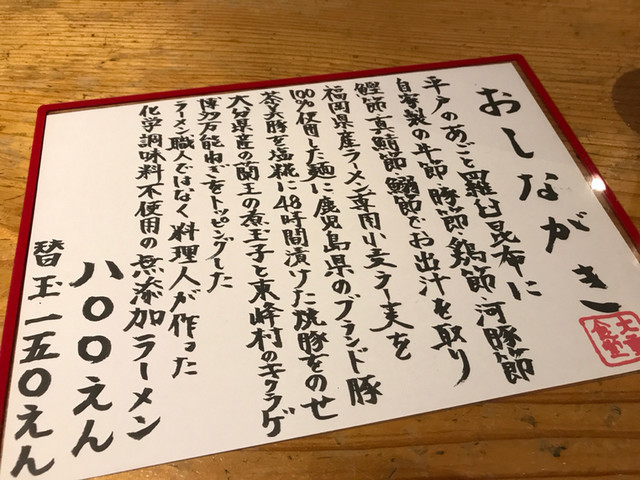 おしながき
平戸のあごと羅臼昆布に
自家製の牛節・豚節・鶏節・河豚節
鰹節・真鯖節・鰯節でお出汁を取り
福岡県産ラーメン専用小麦ラー麦を
100%使用した麺に鹿児島県のブランド豚
茶美豚を塩糀に48時間漬けた焼豚をのせ
大分県産の蘭王の煮玉子と東峰村のキクラゲ
博多万能ねぎをトッピングした
ラーメン職人ではなく料理人が作った
化学調味料不使用の無添加ラーメン
八〇〇えん
替玉一五〇えん